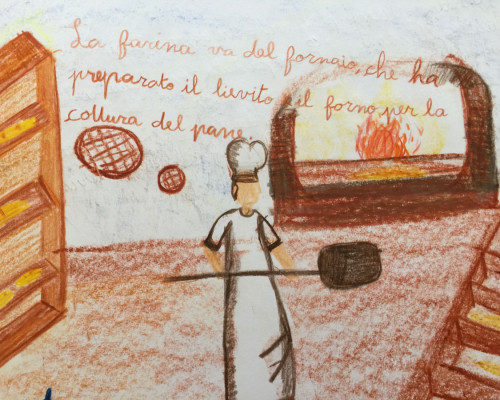 La farina va dal fornaio, che ha
preparato il lievito e il forno per la
collura del pane.